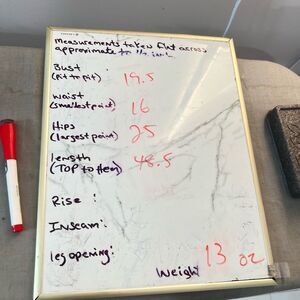 measurements taken flat across
approximate to 1/2 inch
Bust :
(Pit to pit) 19.5
waist
(smallest point) 16
Hips
(largest point) 25
Length
(TOP to Hem) 48.5
Rise :
Inseam :
leg opening :
weight 13 oz